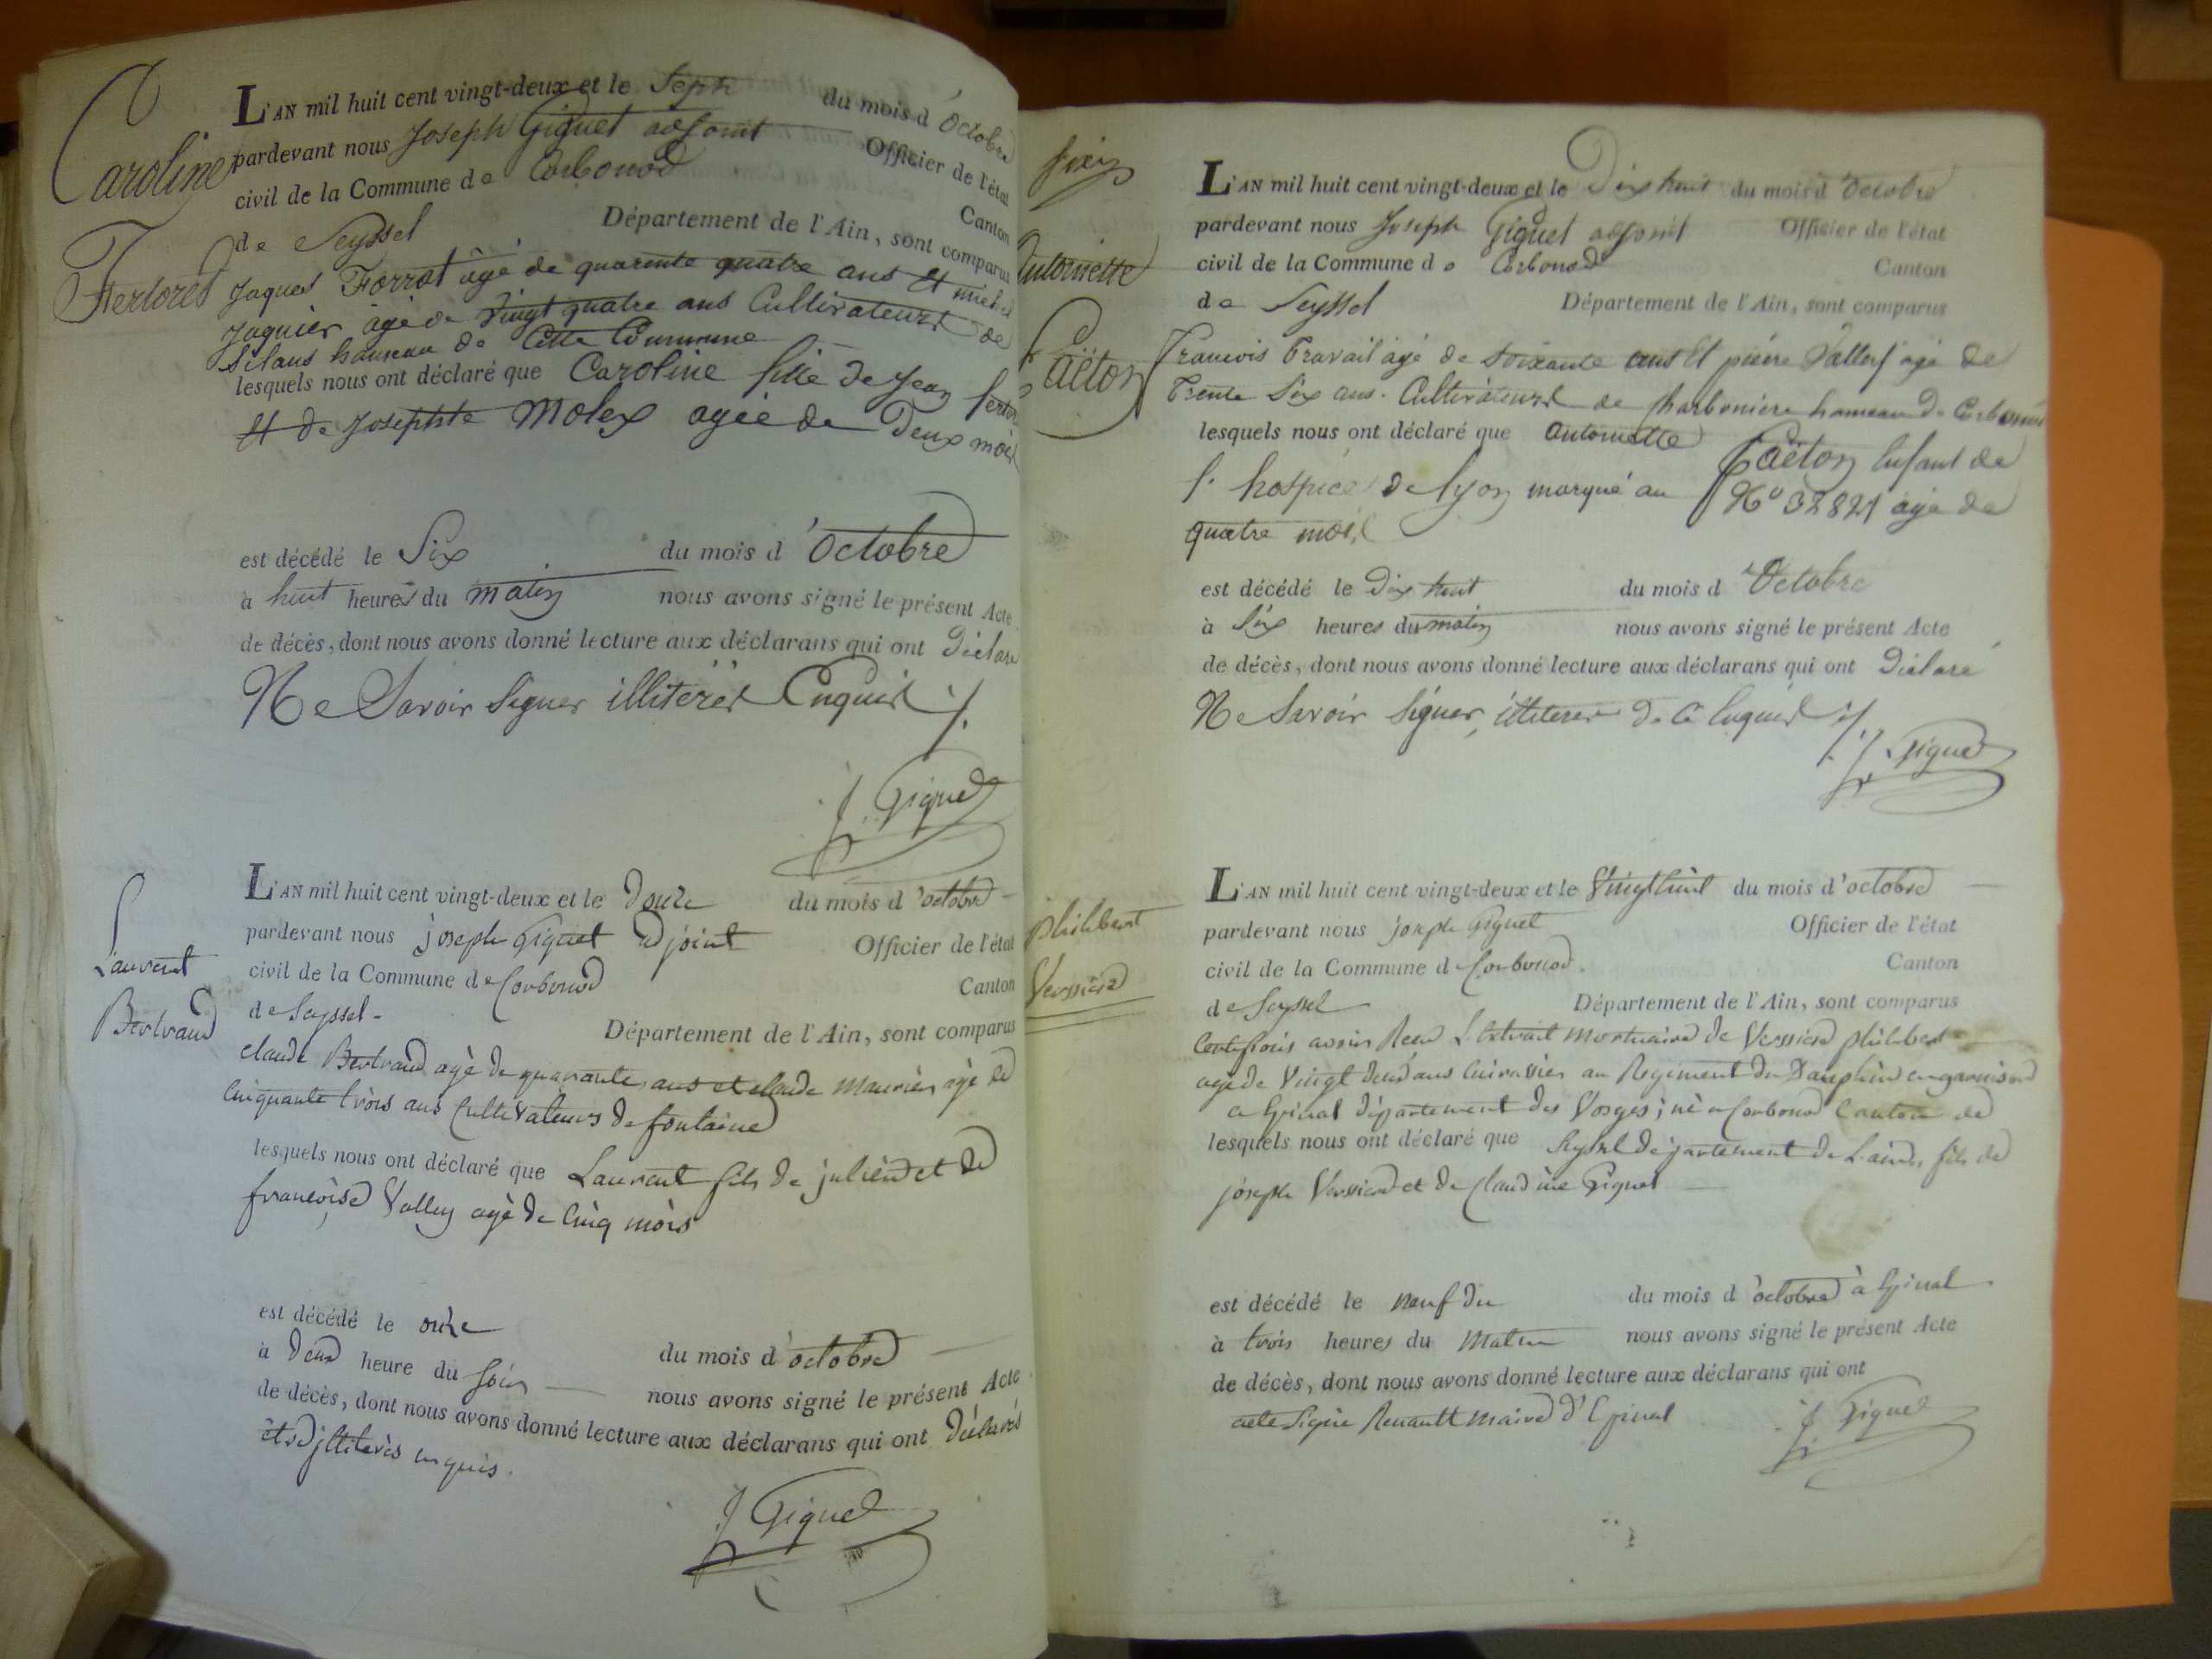 Caroline
Fertoret
L'AN mil huit cent vingt-deux et le Sept du mois d'Octobre
pardevant nous Joseph Giguet adjoint Officier de l'état
civil de la Commune de Corbonod Canton
de Seyssel Département de l'Ain, sont comparus
Jaques Forrat âgé de quarente quatre ans Et michel
Jaquier agé de Vingt quatre ans Cultivateurs de
Silans hameau de Cette Commune
lesquels nous ont déclaré que Caroline fille de Jean
Et de Josephte Molex agée de Deux mois
est décédé le Six du mois d'Octobre
à huit heures du matin nous avons signé le présent Acte
de décès, dont nous avons donné lecture aux déclarans qui ont Déclaré
Ne Savoir Signer illiterés Enquis ./.
J. Giguet
Laurent
Bertrand
L'AN mil huit cent vingt-deux et le Douze du mois d'octobre
pardevant nous joseph Giguet adjoint Officier de l'état
civil de la Commune de Corbonod Canton
de Seyssel - Département de l'Ain, sont comparus
claude Bertrand agè de quarante ans et claude Maurier agè de
Cinquante trois ans Cultivateurs de fontaine
lesquels nous ont déclaré que Laurent fils de julien et de
francoise Valley agè de Cinq mois
est décédé le onze du mois d'octobre
à Deux heure du soir nous avons signé le présent Acte
de décès, dont nous avons donné lecture aux déclarans qui ont Déclarés
être jlliterès enquis.
J Giguet
Antoinette
Caëton
L'AN mil huit cent vingt-deux et le Dix huit du mois d'Octobre
pardevant nous Joseph Giguet adjoint Officier de l'état
civil de la Commune de Corbonod Canton
de Seyssel Département de l'Ain, sont comparus
Francois Travail agé de Soixante ans Et pierre agé de
Trente Six ans. Cultivateurs de Charboniere hameau de Corbonod
lesquels nous ont déclaré que Antoinette Caëton Enfant de
l'hospice de lyon marqué au No 32821 agé de
quatre mois
est décédé le Dix huit du mois d'Octobre
à Six heures du matin nous avons signé le présent Acte
de décès, dont nous avons donné lecture aux déclarans qui ont Déclaré
Ne Savoir Signer, illiterer de Ce Enquis ./.
J. Giguet
philibert
Verssier
L'AN mil huit cent vingt-deux et le Vingt huit du mois d'octobre
pardevant nous joseph Giguet Officier de l'état
civil de la Commune de Corbonod. Canton
de Seyssel Département de l'Ain, sont comparus
Certifions avoir Recu L'Extrait Mortuaire de Verssier philibert
agé de Vingt deux ans Cuirassier au Regiment du Dauphin en garnison
a Epinal département des Vosges; né a Corbonod Canton de
lesquels nous ont déclaré que Seyssel département de Lain, fils de
joseph Verssier et de Claudine Giguet
est décédé le neuf du du mois d'octobre à Epinal.
à trois heures du Matin nous avons signé le présent Acte
de décès, dont nous avons donné lecture aux déclarans qui ont
acte Signé Renault maire d'Epinal
J. Giguet